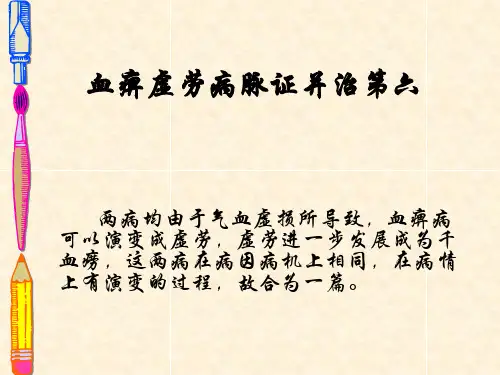 血痹虚劳病脉证并治第六
两病均由于气血虚损所导致，血痹病
可以演变成虚劳，虚劳进一步发展成为干
血痨，这两病在病因病机上相同，在病情
上有演变的过程，故合为一篇。